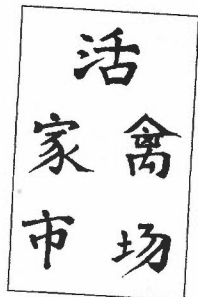 活
家禽
市场